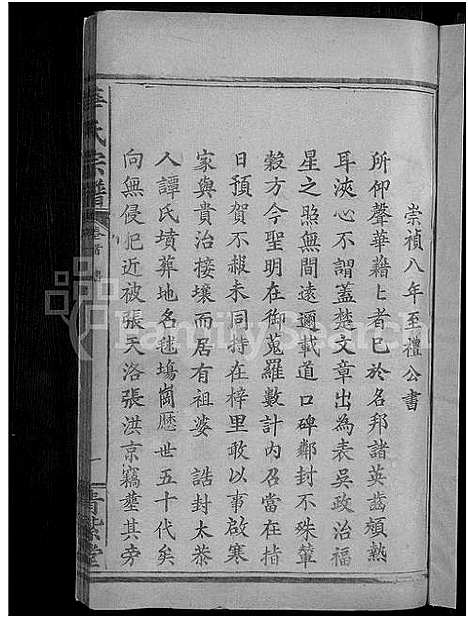 崇禎八年至禮公書
所仰聲華籍上者已於名邦諸英齒頰熟
耳浹心不謂蓋楚文章出為表吳政治福
星之照無間遠邇載道口碑鄰封不殊葷
穀方今聖明在御蒐羅數計內召當在指
日預賀不赧未同持在梓里敢以事啟寒
家與貴治接壤而居有祖婆 誥封太恭
人譚氏墳葬地名毬塲崗歷世五十代矣
向無侵犯近被張天洛張洪京竊塟其旁
華氏宗譜
卷首
一
青紫堂
FamilySearch